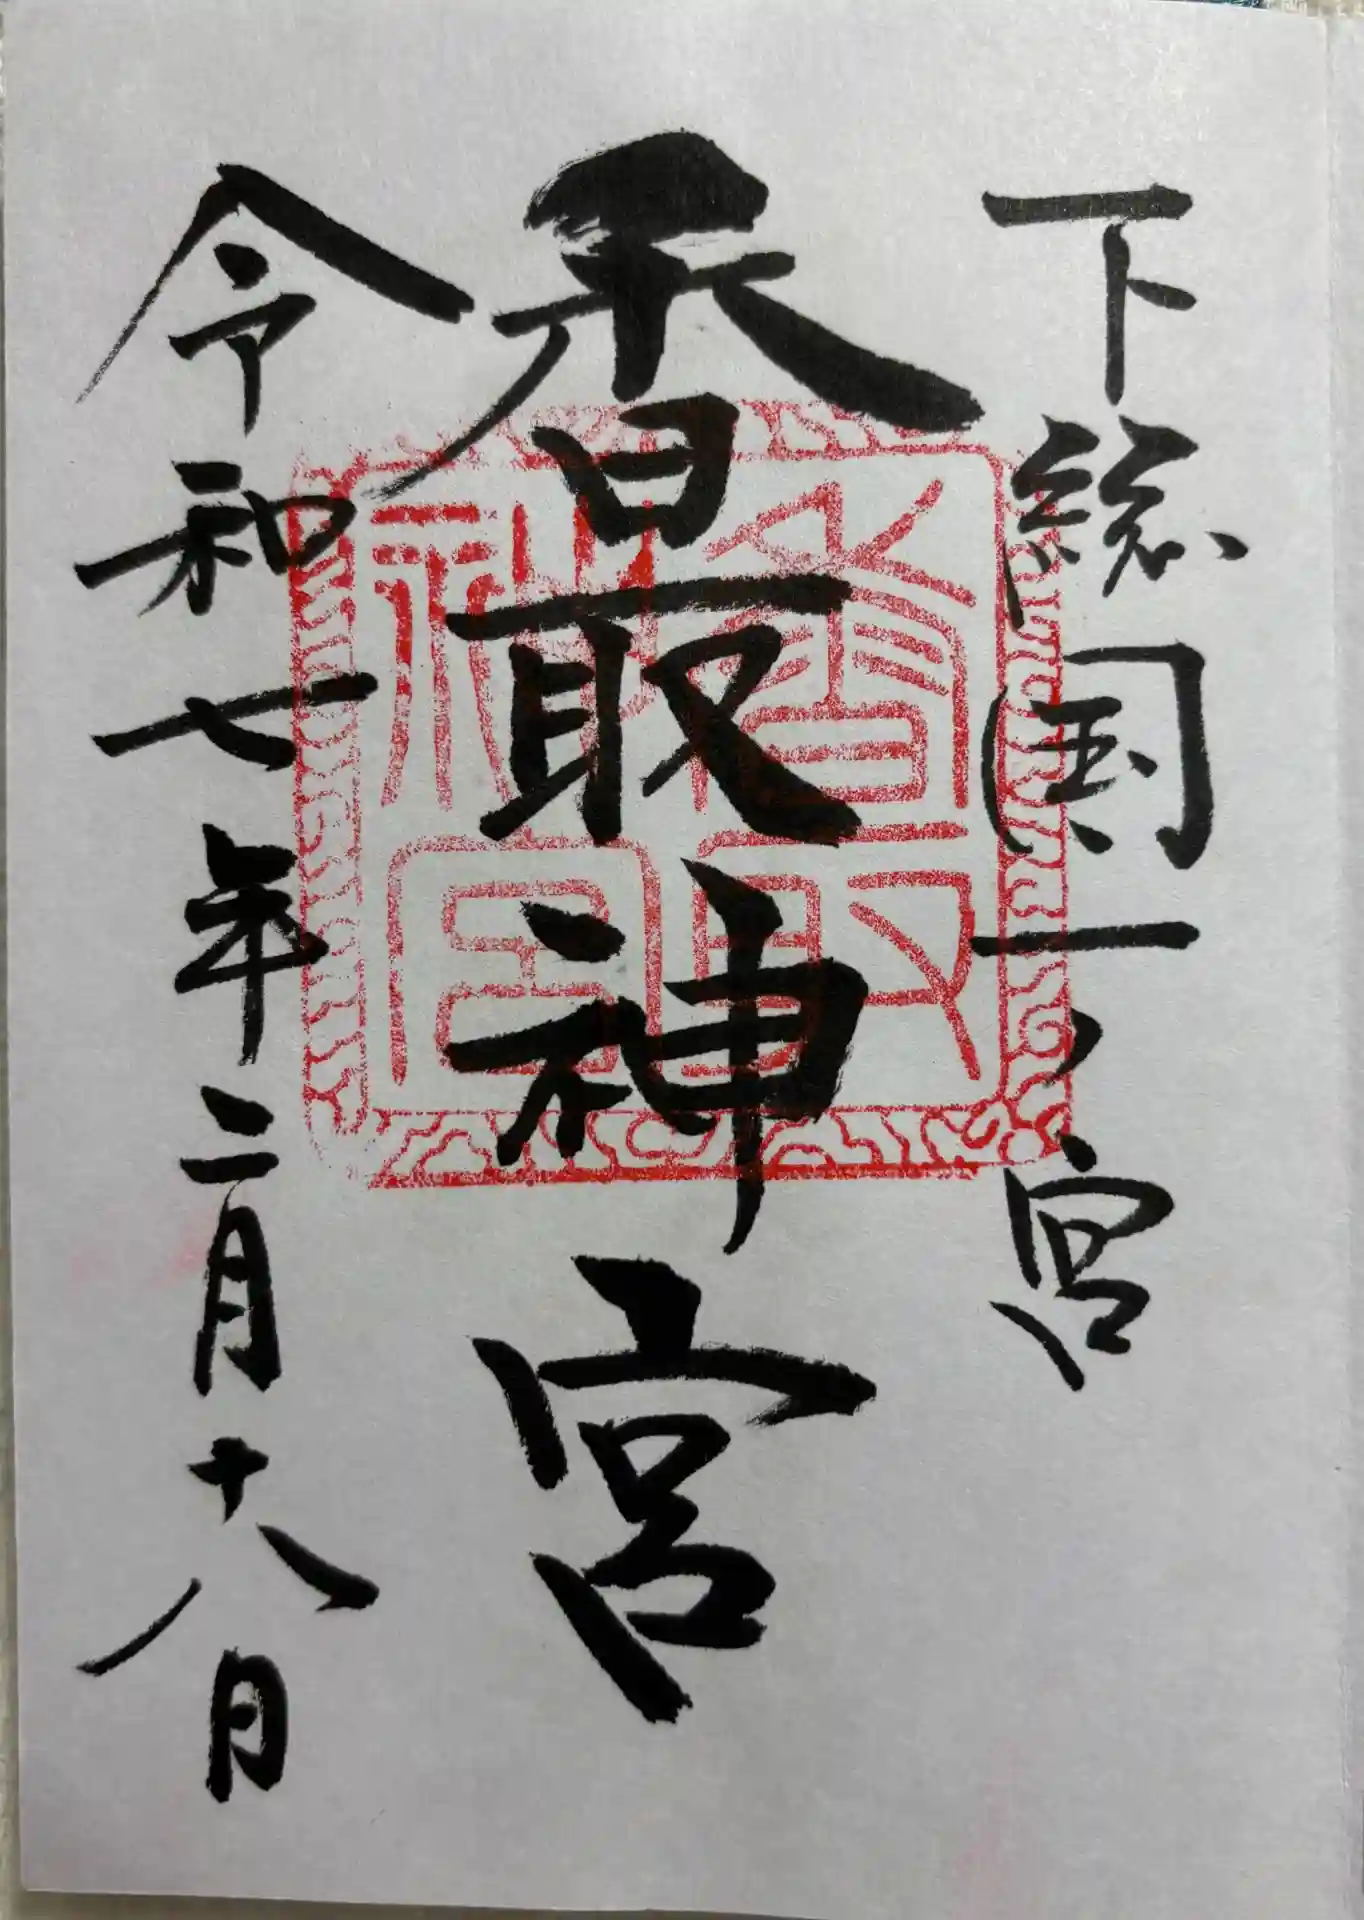 下総国一ノ宮
香取神宮
香取神宮
令和七年二月十八日